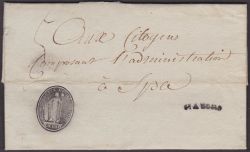 5
Aux Citoyens
Composant l'administration
à Spa